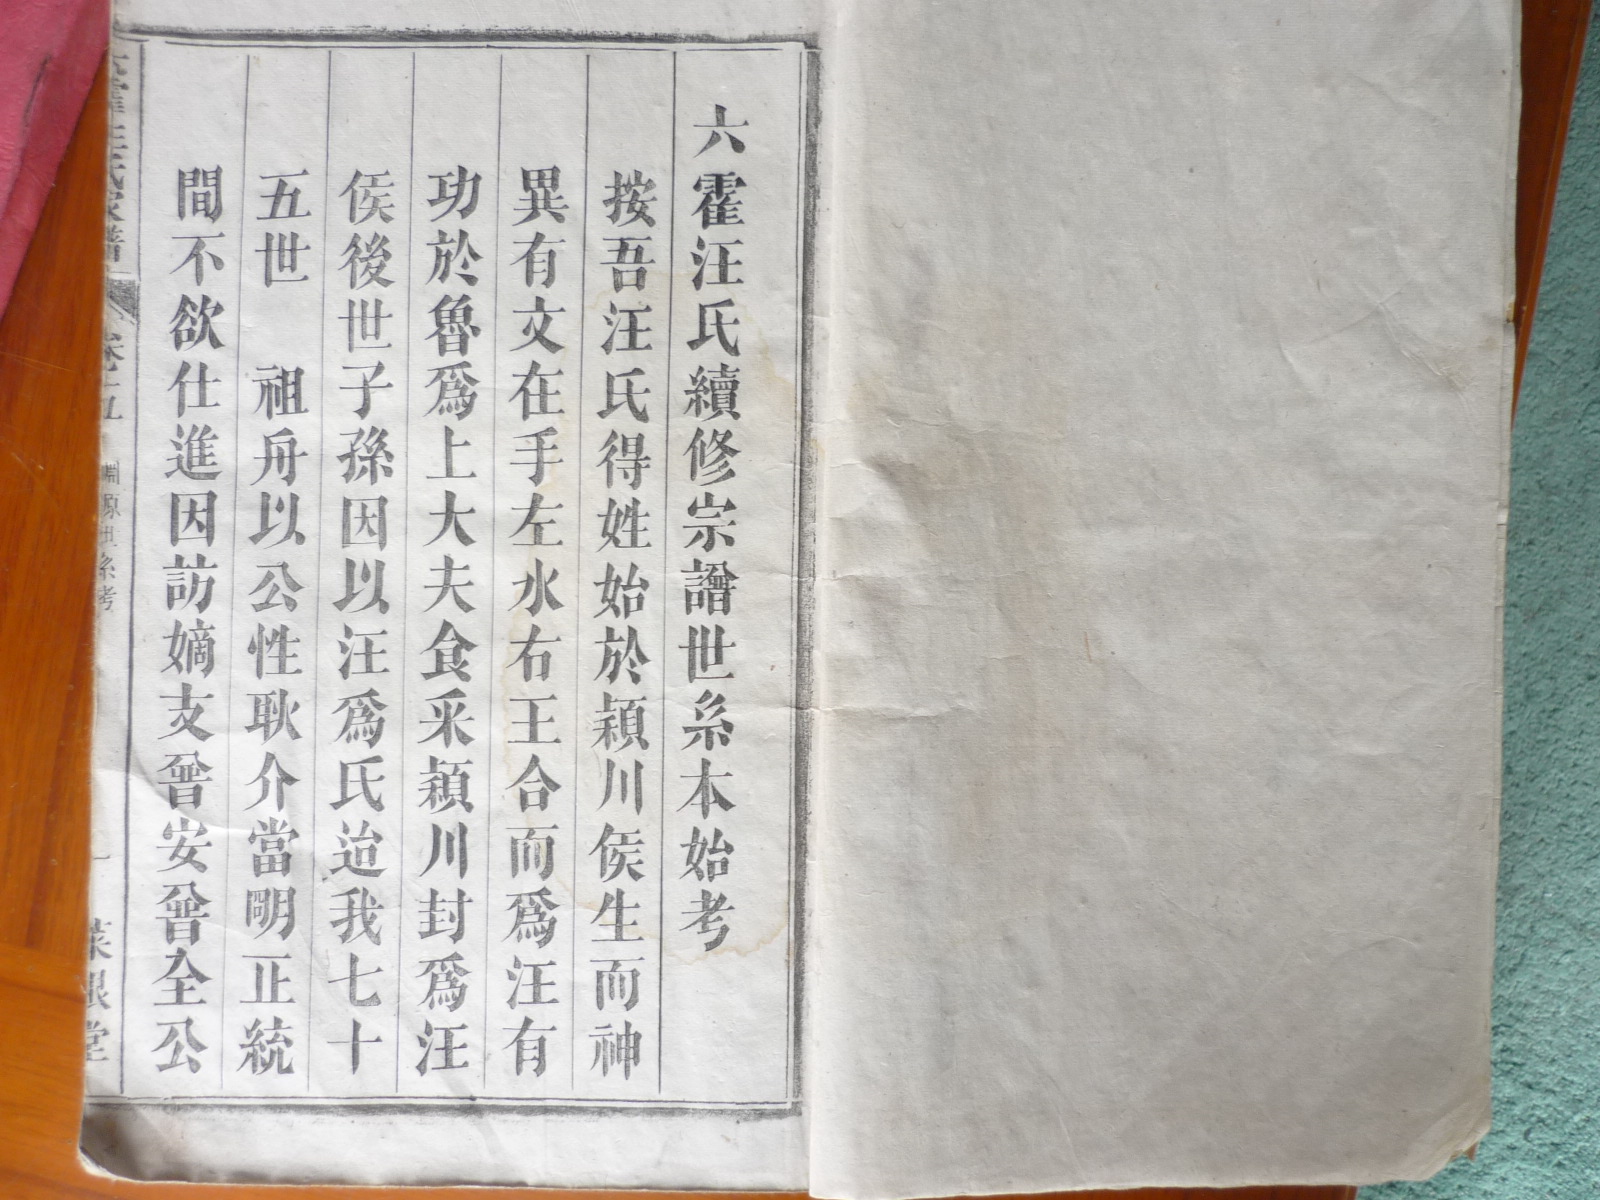 六霍汪氏續修宗譜世系本始考
按吾汪氏得姓始於潁川侯生而神
異有文在手左水右王合而爲汪有
功於魯爲上大夫食采潁川封爲汪
侯後世子孫因以汪爲氏迨我七十
五世　祖舟以公性耿介當明正統
間不欲仕進因訪嫡支曾安曾全公
六霍汪氏宗譜　卷十五　淵源世系考　一　萊根堂